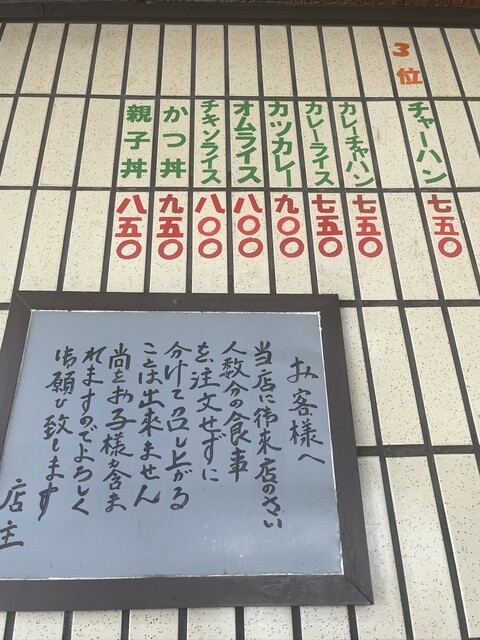 3位
チャーハン 七五〇
カレーチャハン 七五〇
カレーライス 七五〇
カツカレー 九〇〇
オムライス 八〇〇
チキンライス 八〇〇
かつ丼 九五〇
親子丼 八五〇
お客様へ
当店に御来店のさい
人数分の食事
を注文せずに
分けて召し上がる
ことは出来ません
尚もお子様も含ま
れますのでよろしく
御願い致します
店主